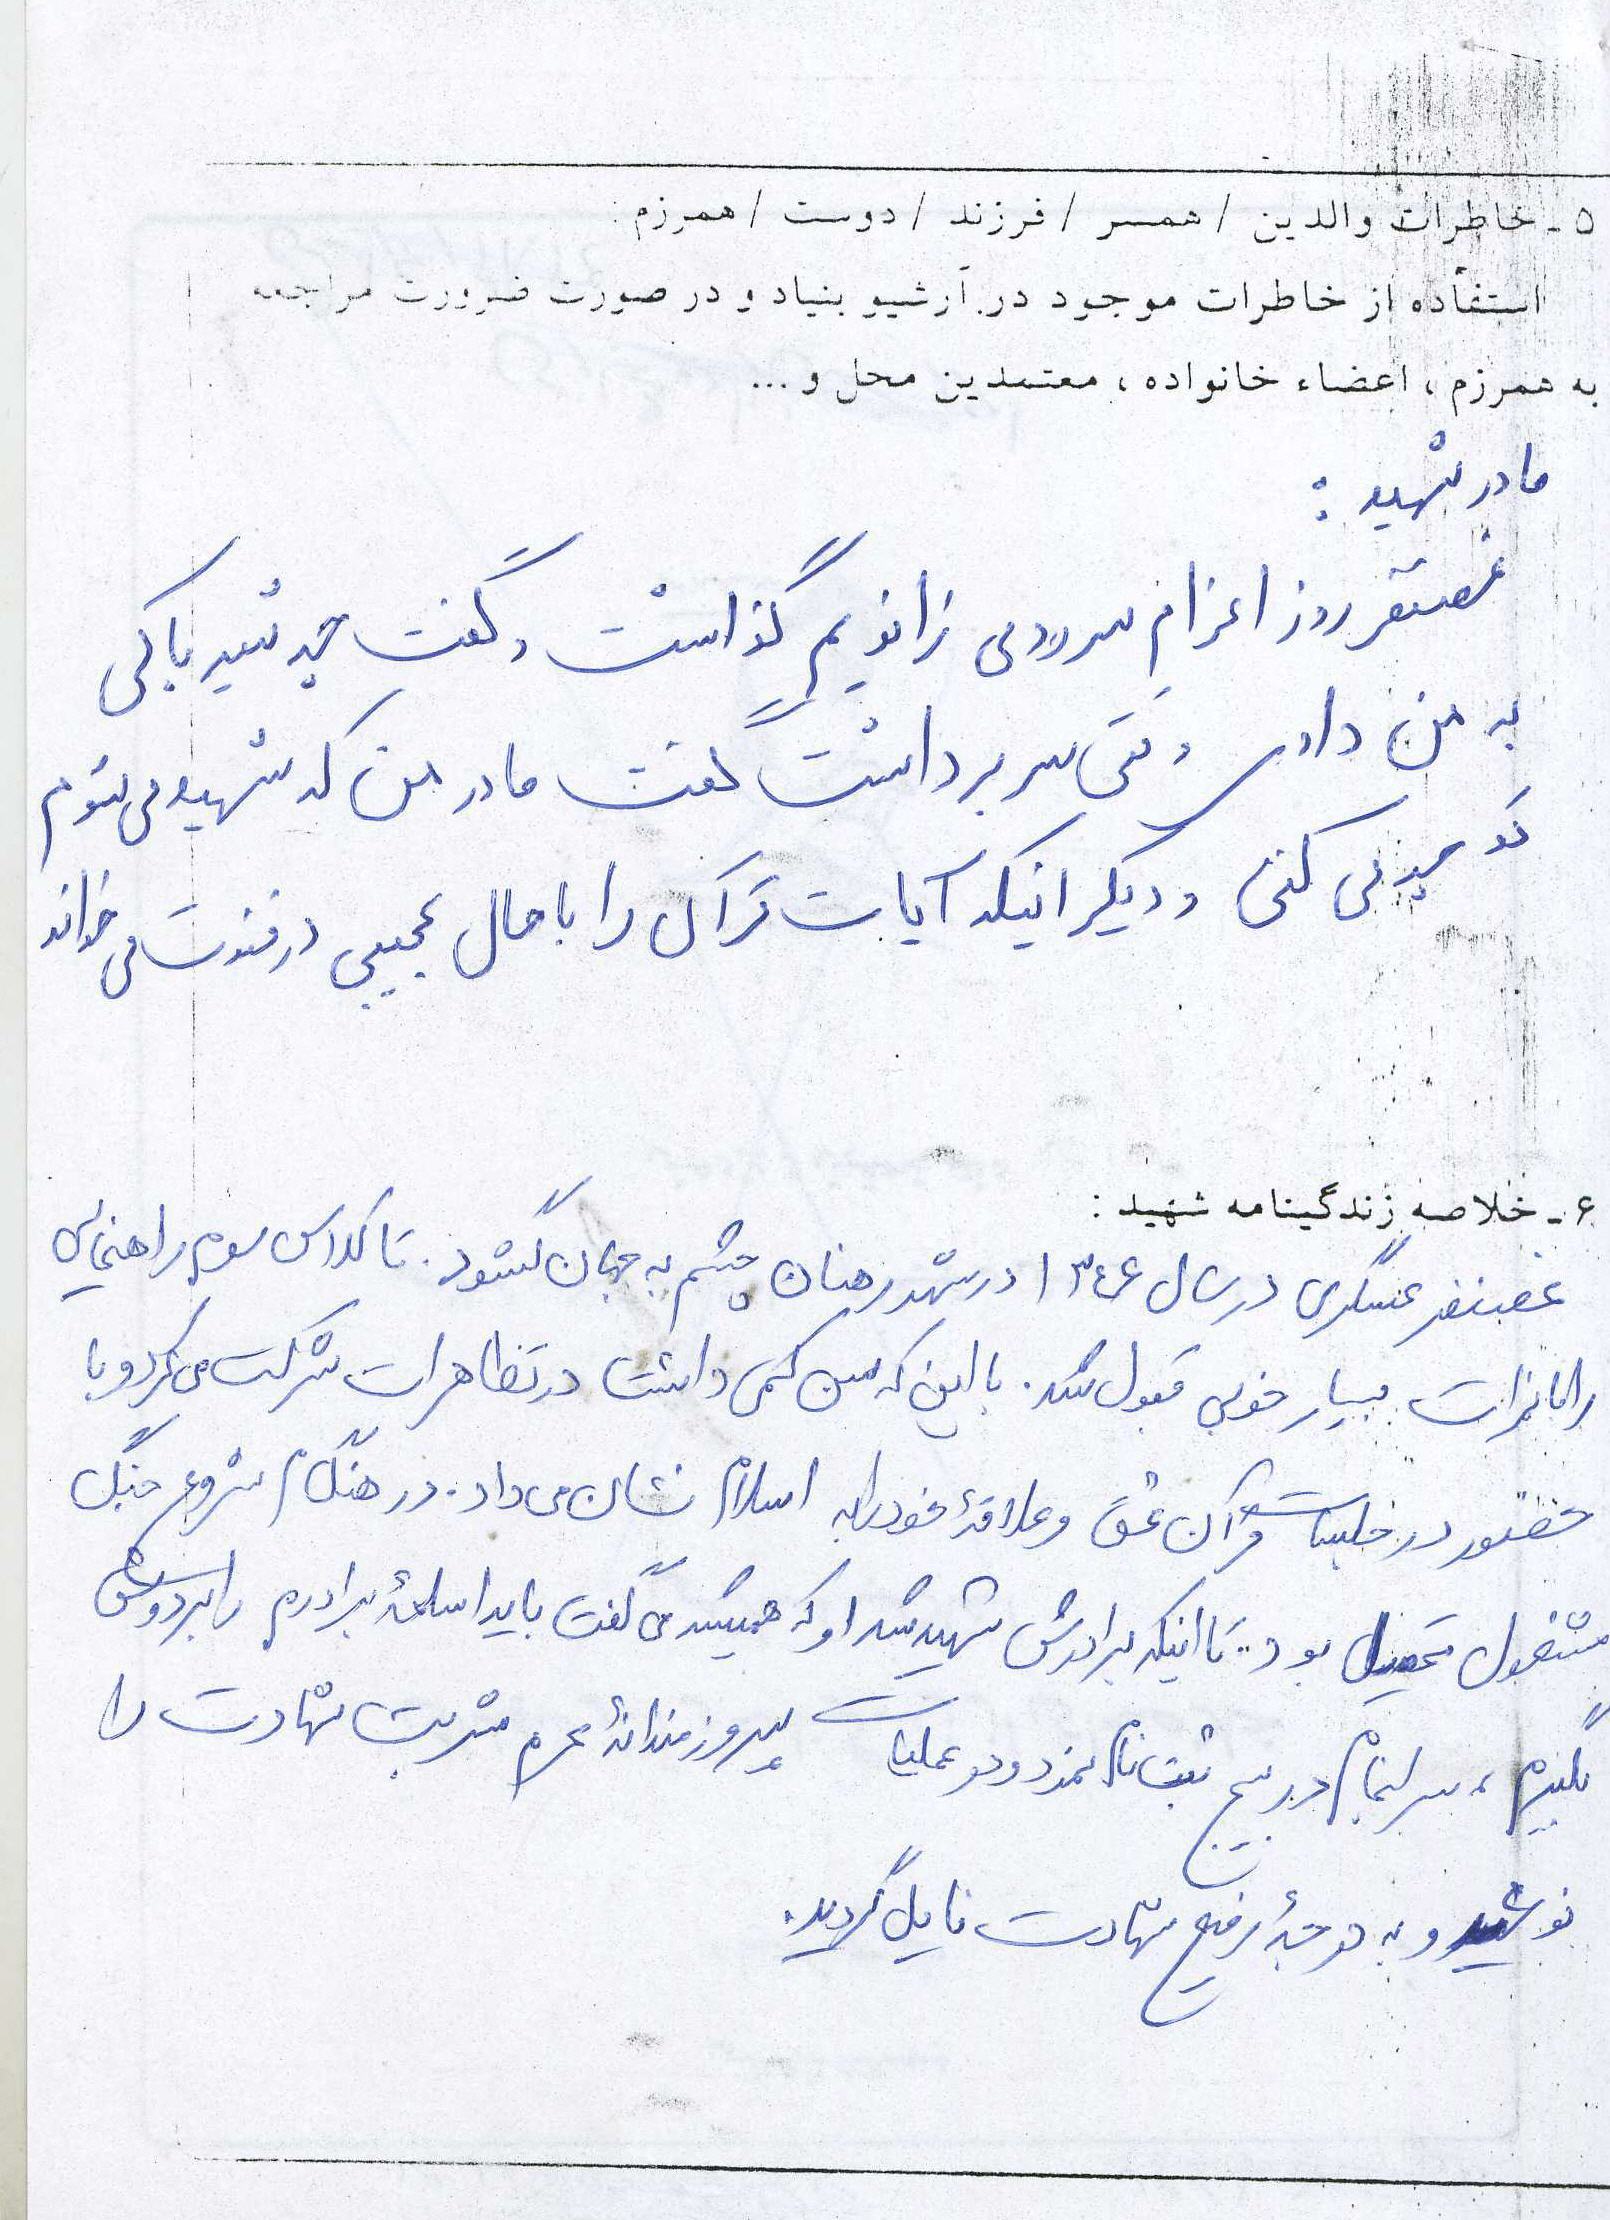 ۵ـ خاطرات والدین / همسر / فرزند / دوست / همرزم :
استفاده از خاطرات موجود در آرشیو بنیاد و در صورت ضرورت مراجعه
به همرزم ، اعضاء خانواده ، معتمدین محل و ...
مادر شهید :
غضنفر روز اعزام سر روی زانویم گذاشت و گفت چه شیر پاکی
به من دادی وقتی سر برداشت گفت مادر من که شهید می شوم
تو چه می کنی و دیگر اینکه آیات قرآن را با حال عجیبی در قنوت می خواند
۶ـ خلاصه زندگینامه شهید :
غضنفر عسگری در سال ۱۳۴۶ در شهر رهنان چشم به جهان گشود. تا کلاس سوم راهنمایی
را با نمرات بسیار خوبی قبول شد. با این که سن کمی داشت در تظاهرات شرکت می کرد و با
حضور در جلسات قرآن عشق و علاقهٔ خود را به اسلام نشان می داد. در هنگام شروع جنگ
مشغول تحصیل بود. تا اینکه برادرش شهید شد او که همیشه می گفت باید اسلحهٔ برادرم را بر دوش
بگیرم ، سرانجام در بسیج ثبت نام نمود و در عملیات پیروزمندانهٔ محرم شربت شهادت را
نوشید و به درجهٔ رفیع شهادت نایل گردید.